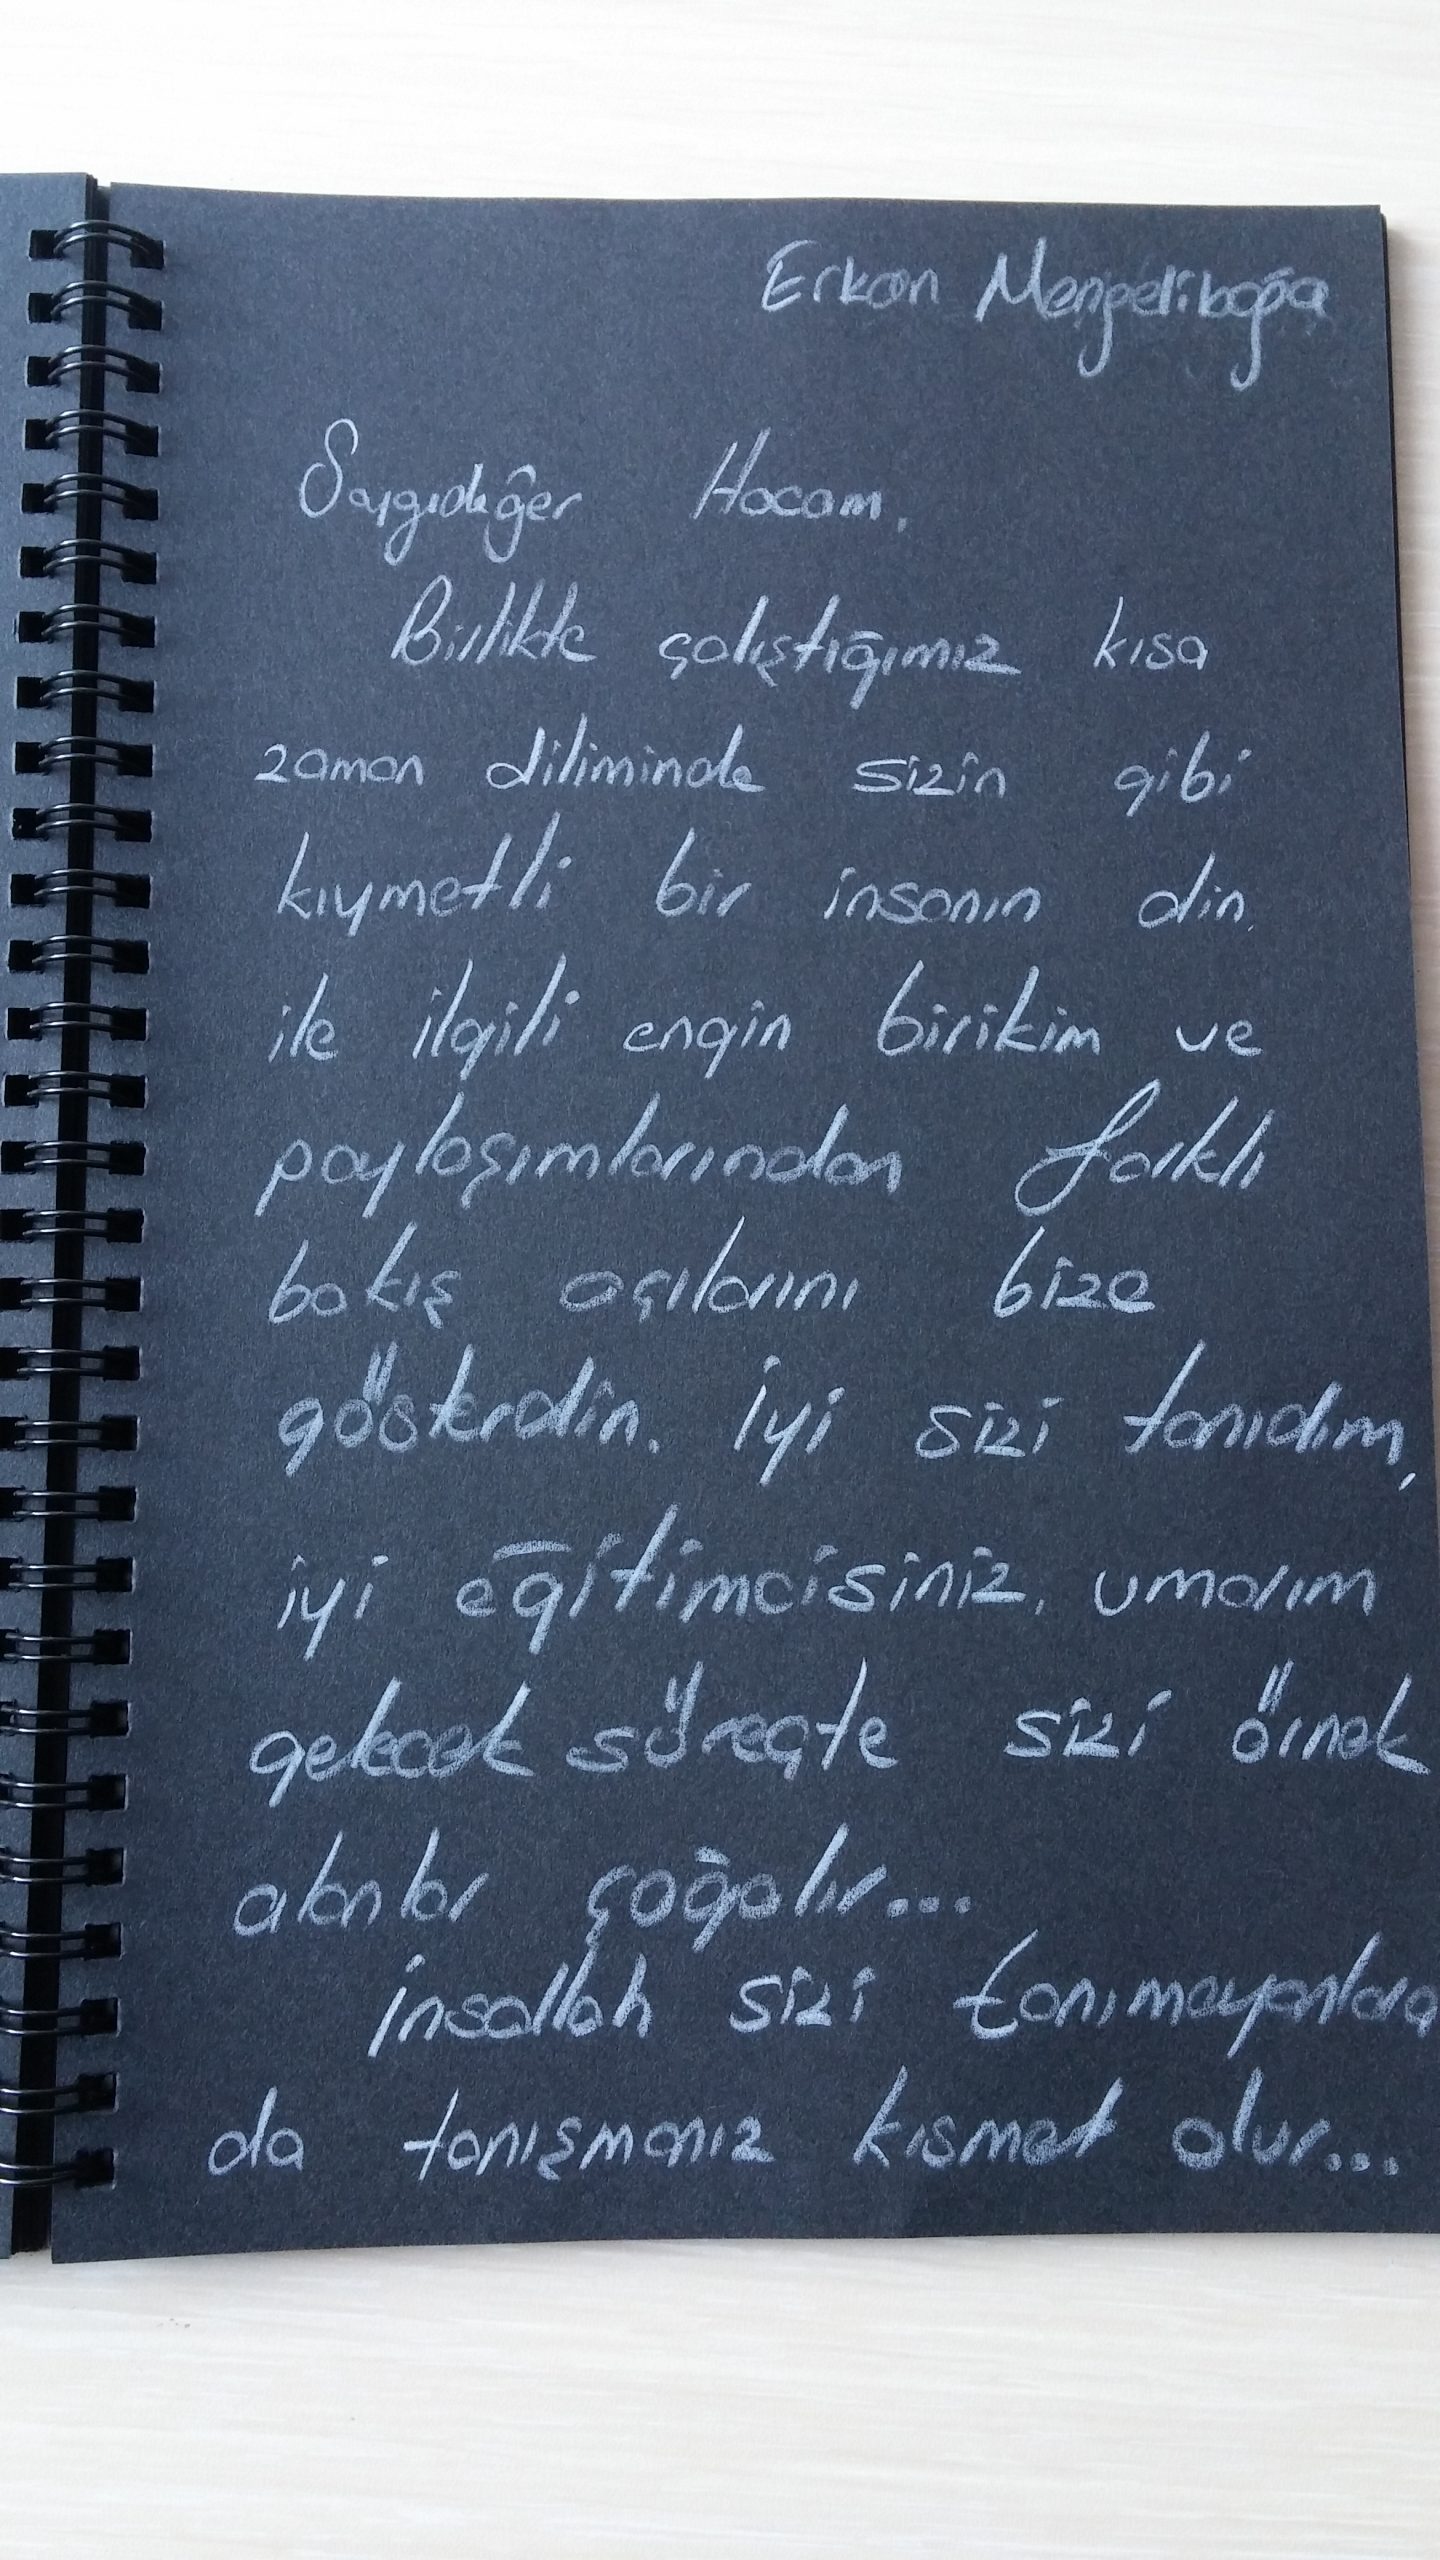 Erkan Mengeliboğa
Saygıdeğer Hocam,
Birlikte çalıştığımız kısa
zaman diliminde sizin gibi
kıymetli bir insanın din
ile ilgili engin birikim ve
paylaşımlarından farklı
bakış açılarını bize
gösterdin. İyi sizi tanıdım,
iyi eğitimcisiniz, umarım
gelecek süreçte sizi örnek
alanlar çoğalır...
İnsallah sizi tanımayanlara
da tanışmanız kısmet olur...